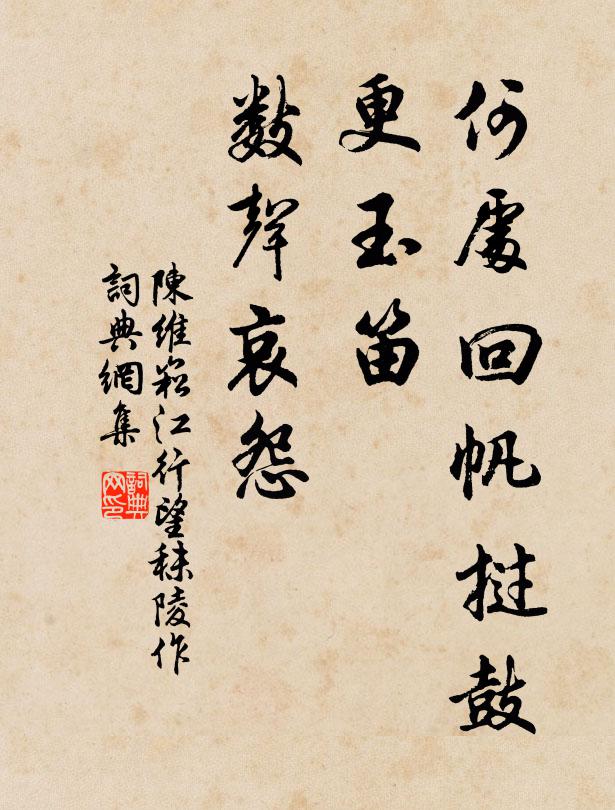 何處回帆挝鼓
更玉笛
數聲哀怨
陳維崧江行望秣陵作
詞典網集
詞典网印